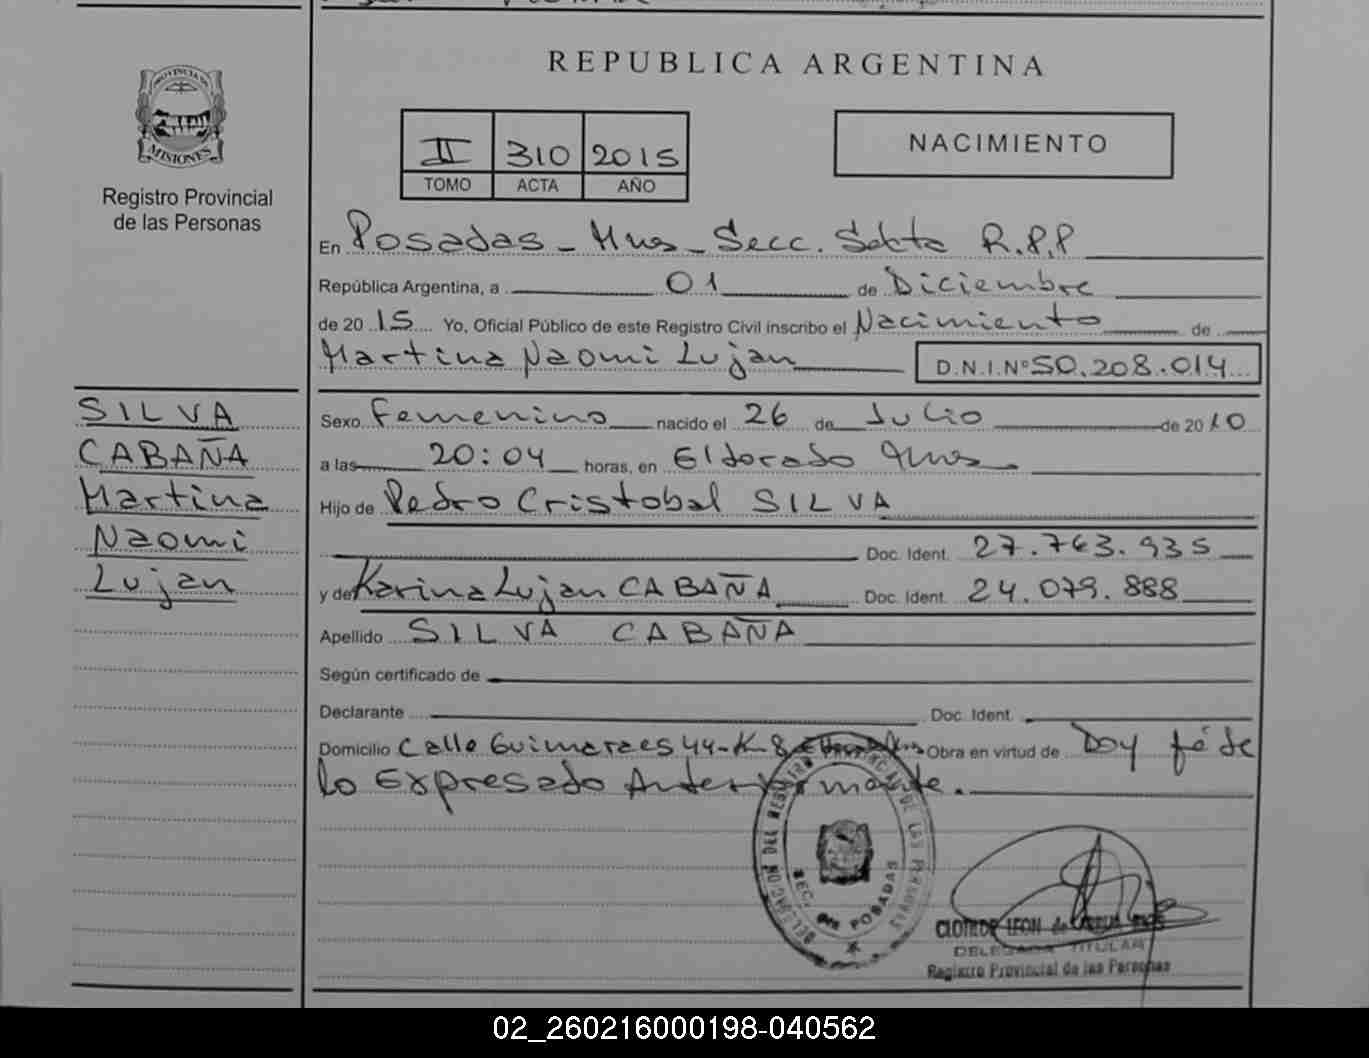 REPUBLICA ARGENTINA
PROVINCIA DE
MISIONES
Registro Provincial
de las Personas
II 310 2015
TOMO ACTA AÑO
NACIMIENTO
En Posadas - Mnes - Secc. Sexta R.P.P
República Argentina, a 01 de Diciembre
de 20 15 Yo, Oficial Público de este Registro Civil inscribo el Nacimiento de
Martina Naomi Lujan D.N.I.Nº 50.208.014
SILVA
CABAÑA
Martina
Naomi
Lujan
Sexo Femenino nacido el 26 de Julio de 20 10
a las 20:04 horas, en Eldorado Mnes.
Hijo de Pedro Cristobal SILVA
Doc. Ident. 27.763.935
y de Karina Lujan CABAÑA Doc. Ident. 24.079.888
Apellido SILVA CABAÑA
Según certificado de
Declarante Doc. Ident.
Domicilio Calle Guimaraes 44-K-8 Obra en virtud de Doy fé de
lo Expresado Anteriormente.
DELEGACION DEL REGISTRO PROVINCIAL DE LAS PERSONAS
SEC. 6ta POSADAS
CLOTILDE LEON de
DELEGADA TITULAR
Registro Provincial de las Personas
02_260216000198-040562